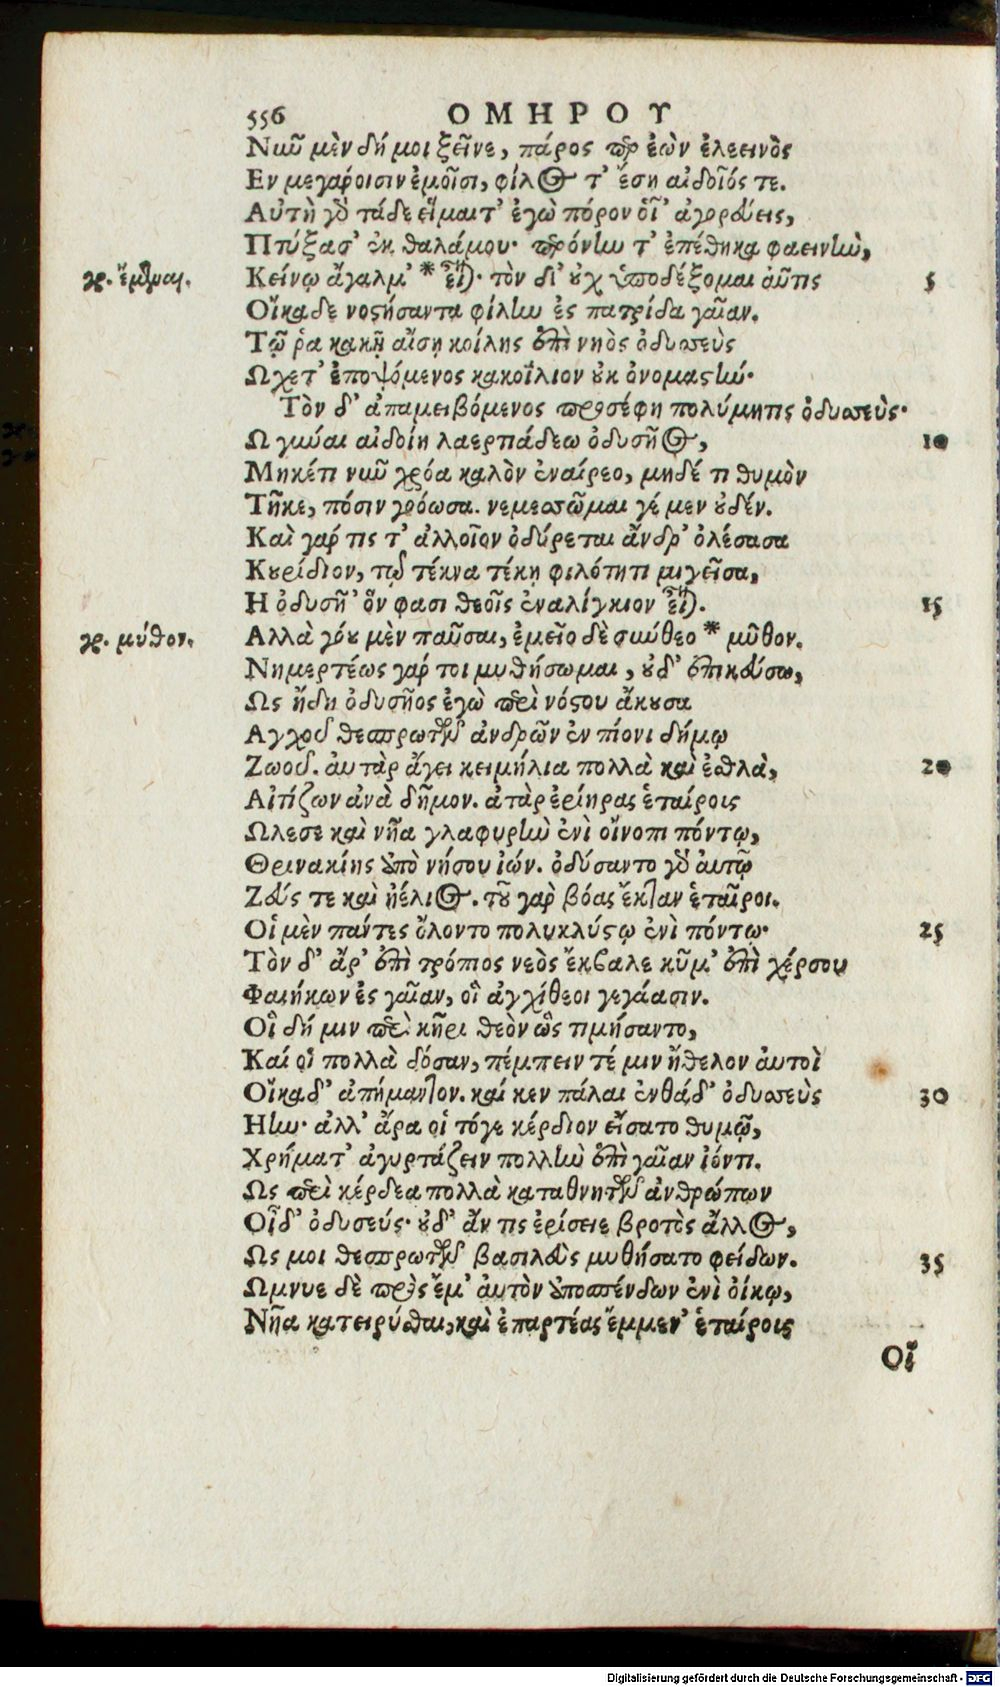 556 ΟΜΗΡΟΥ
Νῦν μὲν δή μοι ξεῖνε, πάρος περ ἐὼν ἐλεεινὸς
Εν μεγάροισιν ἐμοῖσι, φίλος τ' ἔση αἰδοῖός τε.
Αὐτὴ γὰρ τάδε εἵματ' ἐγὼ πόρον οἷ' ἀγορεύεις,
Πτύξασ' ἐκ θαλάμου· περόνην τ' ἐπέθηκα φαεινὴν,
γρ. ἔμμεναι. Κείνῳ ἄγαλμ' * εἶναι· τὸν δ' οὐχ ὑποδέξομαι αὖτις 5
Οἴκαδε νοστήσαντα φίλην ἐς πατρίδα γαῖαν.
Τῷ ῥα κακῇ αἴσῃ κοίλης ἐπὶ νηὸς ὀδυσσεὺς
Ωχετ' ἐποψόμενος κακοΐλιον οὐκ ὀνομαστήν·
Τὸν δ' ἀπαμειβόμενος προσέφη πολύμητις ὀδυσσεύς·
Ω γύναι αἰδοίη λαερτιάδεω ὀδυσῆος, 10
Μηκέτι νῦν χρόα καλὸν ἐναίρεο, μηδέ τι θυμὸν
Τῆκε, πόσιν γοόωσα. νεμεσσῶμαι γέ μεν οὐδέν.
Καὶ γάρ τις τ' ἀλλοῖον ὀδύρεται ἄνδρ' ὀλέσασα
Κουρίδιον, τῷ τέκνα τέκῃ φιλότητι μιγεῖσα,
Η ὀδυσῆ' ὅν φασι θεοῖς ἐναλίγκιον εἶναι. 15
γρ. μύθον. Αλλὰ γόου μὲν παῦσαι, ἐμεῖο δὲ σύνθεο * μῦθον.
Νημερτέως γάρ τοι μυθήσωμαι, οὐδ' ἐπικεύσω,
Ως ἤδη ὀδυσῆος ἐγὼ περὶ νόστου ἄκουσα
Αγχοῦ θεσπρωτῶν ἀνδρῶν ἐν πίονι δήμῳ
Ζωοῦ. ἀυτὰρ ἄγει κειμήλια πολλὰ καὶ ἐσθλὰ, 20
Αἰτίζων ἀνὰ δῆμον. ἀτὰρ ἐρίηρας ἑταίροις
Ωλεσε καὶ νῆα γλαφυρὴν ἐνὶ οἴνοπι πόντῳ,
Θρινακίης ὑπὸ νήσου ἰών. ὀδύσαντο γὰρ ἀυτῷ
Ζεύς τε καὶ ἠέλιος. τοῦ γὰρ βόας ἔκταν ἑταῖροι.
Οἱ μὲν πάντες ὄλοντο πολυκλύστῳ ἐνὶ πόντῳ· 25
Τὸν δ' ἄρ' ἐπὶ τρόπιος νεὸς ἔκβαλε κῦμ' ἐπὶ χέρσου
Φαιήκων ἐς γαῖαν, οἳ ἀγχίθεοι γεγάασιν.
Οἳ δή μιν περὶ κῆρι θεὸν ὣς τιμήσαντο,
Καί οἱ πολλὰ δόσαν, πέμπειν τέ μιν ἤθελον ἀυτοὶ
Οἴκαδ' ἀπήμαντον. καί κεν πάλαι ἐνθάδ' ὀδυσσεὺς 30
Ηην· ἀλλ' ἄρα οἱ τόγε κέρδιον εἴσατο θυμῷ,
Χρήματ' ἀγυρτάζειν πολλὴν ἐπὶ γαῖαν ἰόντι.
Ως περὶ κέρδεα πολλὰ καταθνητῶν ἀνθρώπων
Οἶδ' ὀδυσεύς· οὐδ' ἄν τις ἐρίσειε βροτὸς ἄλλος,
Ως μοι θεσπρωτῶν βασιλεὺς μυθήσατο φείδων. 35
Ωμνυε δὲ πρὸς ἔμ' ἀυτὸν ὑποσπένδων ἐνὶ οἴκῳ,
Νῆα κατειρύσθαι, καὶ ἐπαρτέας ἔμμεν' ἑταίροις
Οἵ
Digitalisierung gefördert durch die Deutsche Forschungsgemeinschaft - DFG